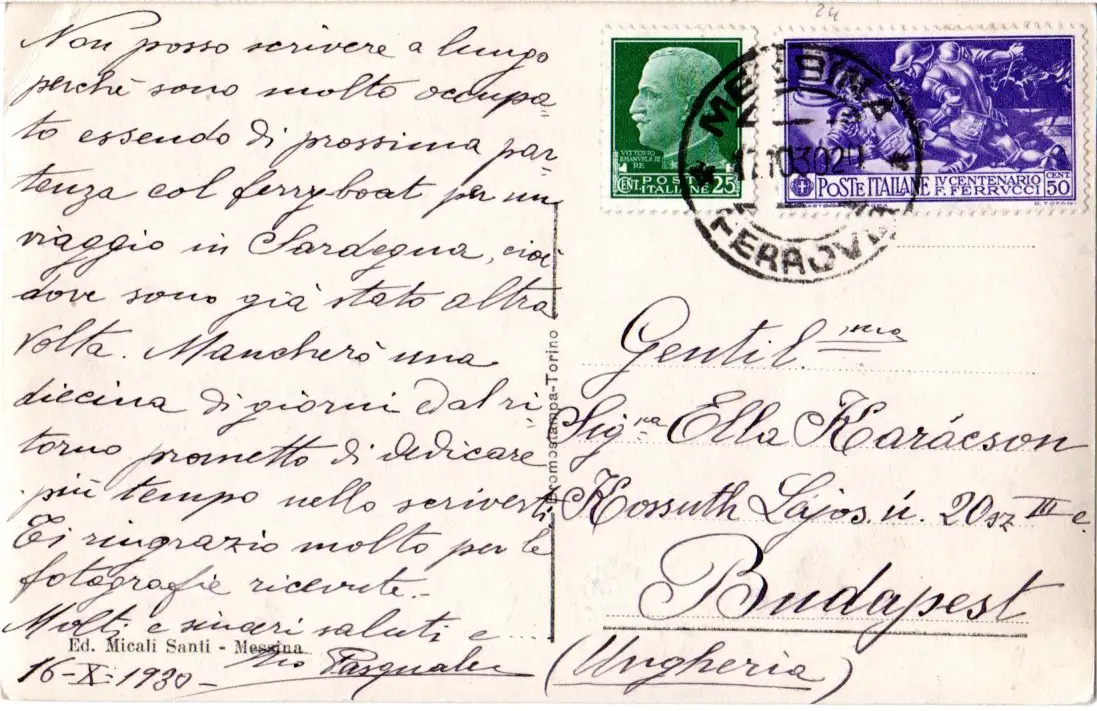 Non posso scrivere a lungo
perchè sono molto occupa
to essendo di prossima par
tenza col ferry-boat per un
viaggio in Sardegna, cioè
dove sono già stato altra
volta. Mancherò una
diecina di giorni e dal ri
torno prometto di dedicare
più tempo nello scriverti.
Ti ringrazio molto per le
fotografie ricevute.-
Molti e sinceri saluti e
Ed. Micali Santi - Messina
Pasquale
16-X-1930-
Bromostampa-Torino
24
VITTORIO
EMANUELE III
RE
CENT. POSTE ITALIANE 25
POSTE ITALIANE IV CENTENARIO F. FERRVCCI CENT 50
MESSINA
17.10 30 20
FERROVIA
Gentil.ma
Sig.ra Ella Karácson
Kossuth Lajos. ú. 20sz III e.
Budapest
(Ungheria)